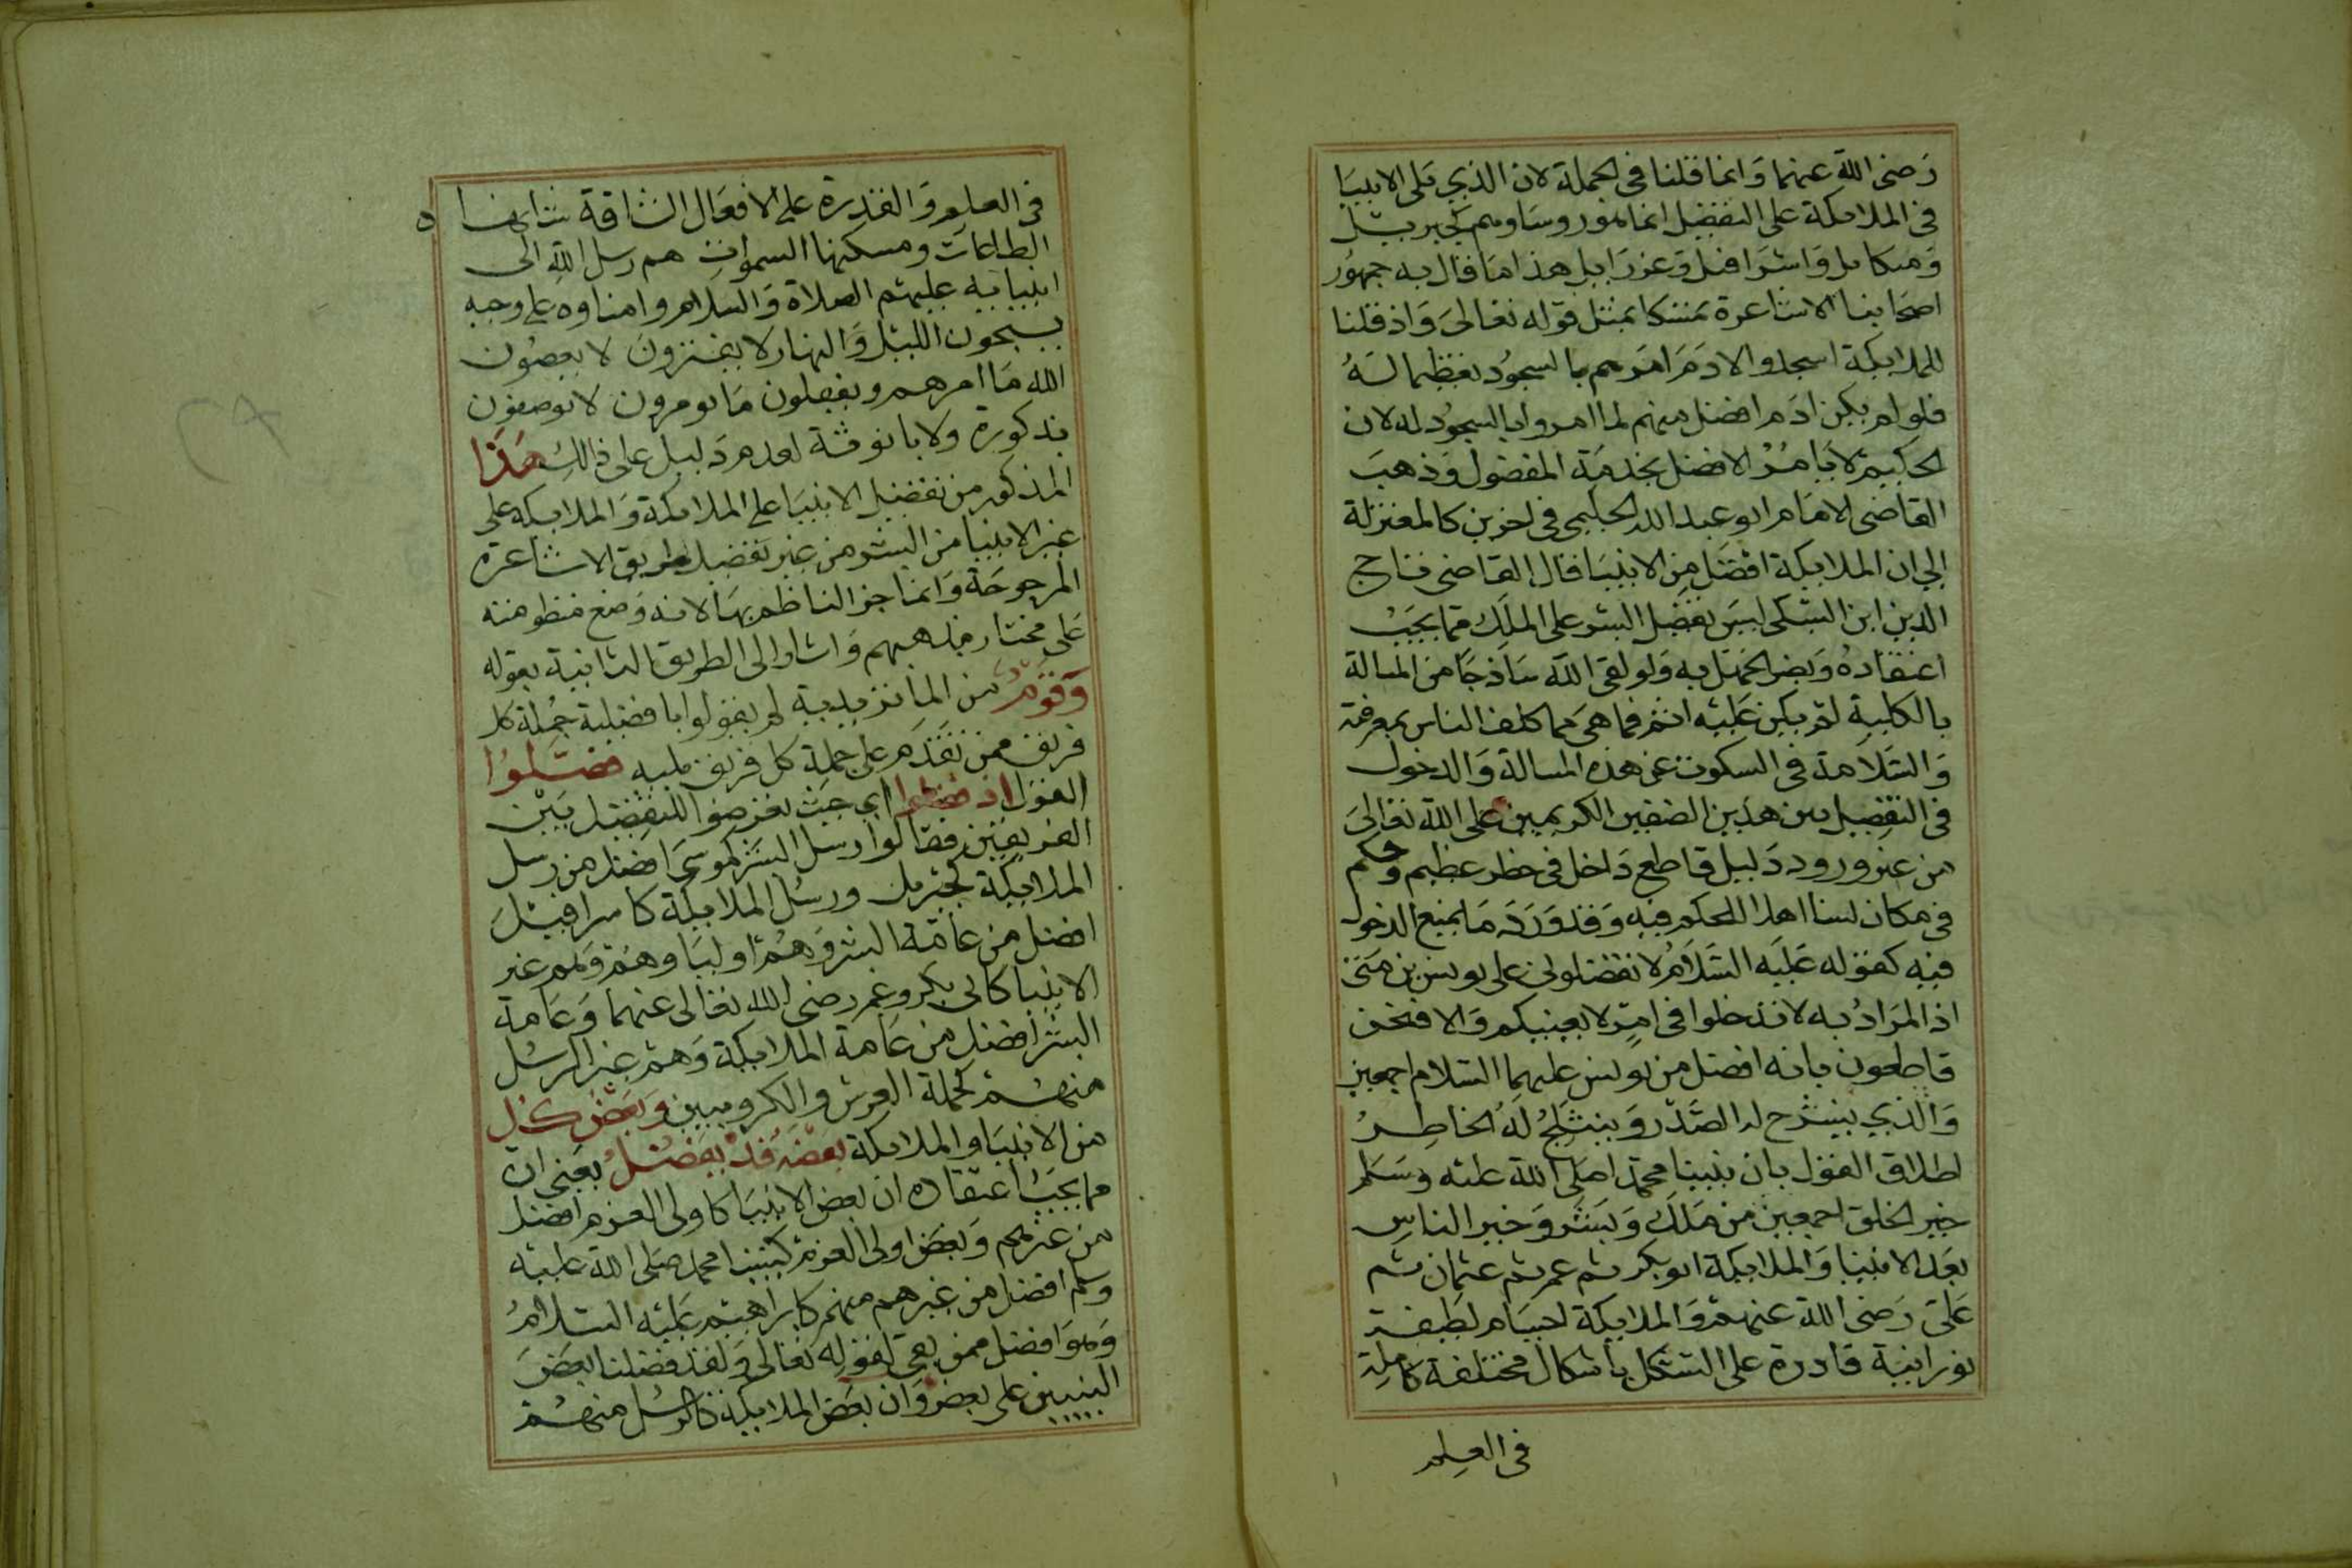 رضى الله عنهما وانما قلنا فى الجملة لان الذي يلى الانبيا
فى الملايكة على التفضيل انما هو روساوهم كجبريل
وميكايل واسرافيل وعزرايل هذا ما قال به جمهور
اصحابنا الاشاعرة تمسكا بمثل قوله تعالى واذ قلنا
للملايكة اسجدوا لادم امرهم بالسجود تعظيما له
فلو لم يكن ادم افضل منهم لما امروا بالسجود له لان
الحكيم لا يامر الافضل بخدمة المفضول وذهب
القاضى الامام ابو عبد الله الحليمى فى اخرين كالمعتزلة
الي ان الملايكة افضل من الانبيا قال القاضى تاج
الدين ابن السبكى ليس تفضيل البشر على الملك مما يجب
اعتقاده ويضر الجهل به ولو لقى الله ساذجا من المسالة
بالكلية لم يكن عليه اثم فما هى مما كلف الناس بمعرفته
والسلامة فى السكوت عن هذه المسالة والدخول
فى التفضيل بين هذين الصنفين الكريمين على الله تعالى
من غير ورود دليل قاطع داخل فى خطر عظيم وحكم
فى مكان لسنا اهلا للحكم فيه وقد ورد ما يمنع الدخول
فيه كقوله عليه السلام لا تفضلونى على يونس بن متى
اذ المراد به لا تدخلوا فى امر لا يعنيكم والا فنحن
قاطعون بانه افضل من يونس عليهما السلام اجمعين
والذي ينشرح له الصدر وينثلج له الخاطر
اطلاق القول بان نبينا محمدا صلى الله عليه وسلم
خير الخلق اجمعين من ملك وبشر وخير الناس
بعد الانبيا والملايكة ابو بكر ثم عمر ثم عثمان ثم
على رضى الله عنهم والملايكة اجسام لطيفة
نورانية قادرة على التشكل بأشكال مختلفة كاملة
فى العلم
فى العلم والقدرة على الافعال الشاقة شانها
الطاعات ومسكنها السموات هم رسل الله الى
انبيايه عليهم الصلاة والسلام وامناوه على وحيه
يسبحون الليل والنهار لا يفترون لا يعصون
الله ما امرهم ويفعلون ما يومرون لا يوصفون
بذكورة ولا بانوثة لعدم دليل على ذالك هذا
المذكور من تفضيل الانبيا على الملايكة والملايكه على
غير الانبيا من البشر من غير تفضيل طريق الاشاعرة
المرجوحة وانما جز الناظم بها لانه وضع منظومته
على مختار مذهبهم واشار الى الطريق الثانية بقوله
وقوم من الماتزيدية لم يقولوا بافضلية جملة كل
فريق ممن تقدم على جملة كل فريق يليه فصلوا
القول اذ فضلوا اي حيث تعرضوا للتفضيل بين
الفريقين فقالوا رسل البشر كموسى افضل من رسل
الملايكة كجبريل ورسل الملايكة كاسرافيل
افضل من عامة البشر وهم اوليا وهم وهم غير
الانبيا كابى بكر وعمر رضى الله تعالى عنهما وعامة
البشر افضل من عامة الملايكة وهم غير الرسل
منهم كحملة العرش والكروبيين وبعض كل
من الانبيا والملايكة بعضه قد يفضل بعنى ان
مما يجب اعتقاده ان بعض الانبيا كاولى العزم افضل
من غيرهم وبعض اولى العزم كنبينا محمد صلى الله عليه
وسلم افضل من غيرهم منهم كابراهيم عليه السلام
وهو افضل ممن بقى لقوله تعالى ولقد فضلنا بعض
النبيين على بعض وان بعض الملايكة كالرسل منهم